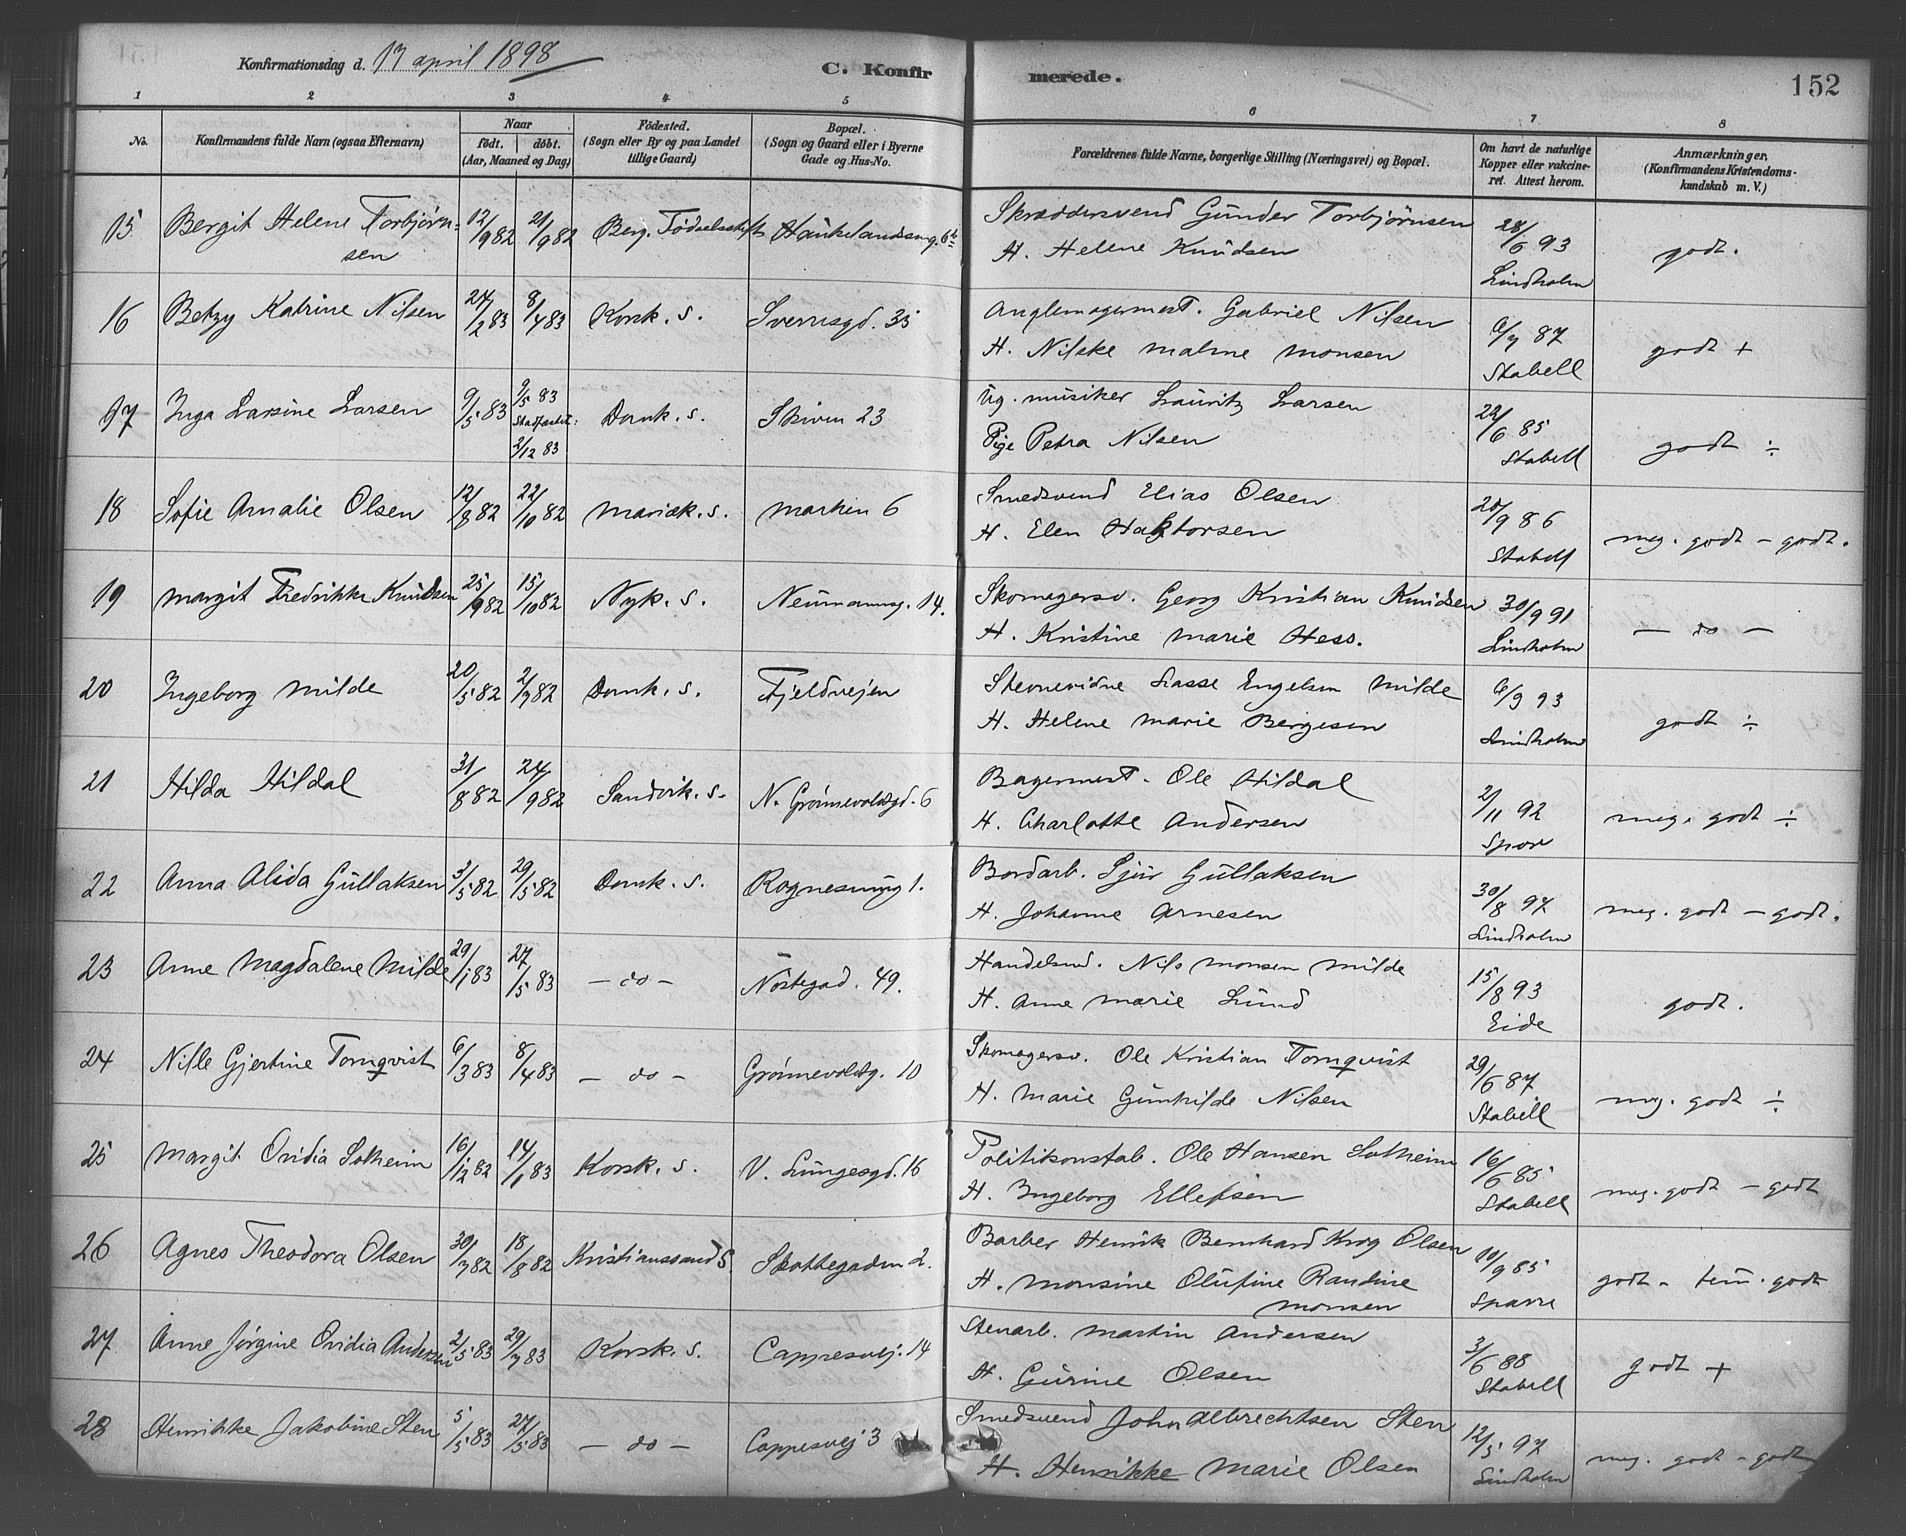 Konfirmationsdag d. 17 april 1898
C. Konfirmerede.
152
1 2 3 4 5 6 7 8
No.
Konfirmandens fulde Navn (ogsaa Efternavn)
Naar
födt. döbt.
(Aar, Maaned og Dag)
Födested.
(Sogn eller By og paa Landet
tillige Gaard)
Bopæl.
(Sogn og Gaard eller i Byerne
Gade og Hus-No.
Forældrenes fulde Navne, borgerlige Stilling (Næringsvei) og Bopæl.
Om havt de naturlige
Kopper eller vakcine-
ret. Attest herom.
Anmærkninger.
(Konfirmandens Kristendoms-
kundskab m. V.)
15 Bergit Helene Torbjørn- 12/9 82 21/9 82 Berg. Födselsstift. Haukelandsvg. 6b Skræddersvend Gunder Torbjörnsen 28/6 93
sen H. Helene Knudsen Lindholm godt.
16 Betzy Katrine Nilsen 24/2 83 8/4 83 Korsk. s. Sverresgd. 35 Gabriel Nilsen 6/7 87
H. Malene Monsen Stabell godt +
17 Inga Larsine Larsen 9/5 83 9/5 83 Domk. s. Skiven 23 Ug. musiker Lauritz Larsen 22/6 85
Stadfæstet: 2/12 83 Pige Petra Nilsen Stabell godt ÷
18 Sofie Amalie Olsen 12/8 82 22/10 82 Mariæk. s. Marken 6 Smedsvend Elias Olsen 20/9 86
H. Elen Haktorsen Stabell meg. godt - godt.
19 Margit Fredrikke Knudsen 25/9 82 15/10 82 Nyk. s. Neumannsg. 14. Skomagersv. Georg Kristian Knudsen 30/9 91
H. Kristine Marie Hess. Lindholm — do —
20 Ingeborg Milde 20/5 82 2/7 82 Domk. s. Fjeldvejen Stevnevidne Lasse Engelsen Milde 6/9 93
H. Helene Marie Bergesen Lindholm godt ÷
21 Hilda Hildal 31/8 82 24/9 82 Sandvik. s. N. Grönnevoldsgd. 6 Bagermest. Ole Hildal 2/11 92
H. Charlotte Andersen Spor meg. godt ÷
22 Anna Alida Gullaksen 3/5 82 29/5 82 Domk. s. Rognesmug 1. Bordarb. Sjur Gullaksen 30/8 97
H. Johanne Arnesen Lindholm meg. godt - godt.
23 Anne Magdalene Milde 29/1 83 27/5 83 — do — Nöstegad. 49. Handelsmd. Nils Monsen Milde 15/8 93
H. Anne Marie Lund Eide godt.
24 Nille Gjertine Tornqvist 6/3 83 8/4 83 — do — Grönnevoldsg. 10 Skomagersv. Ole Kristian Tornqvist 29/6 87
H. Marie Gunhilde Nilsen Stabell meg. godt ÷
25 Margit Ovidia Solheim 16/12 82 14/1 83 Korsk. s. V. Lungesgd. 16 Politikonstab. Ole Hansen Solheim 16/6 85
H. Ingeborg Ellefsen Stabell meg. godt - godt
26 Agnes Theodora Olsen 30/7 82 18/8 82 Kristianssand S. Skottegaden 2. Barber Henrik Bernhard Krog Olsen 10/9 85
H. Monsine Olufine Randine Sparre godt - tem. godt
Monsen
27 Anne Jörgine Ovidia Andersen 2/5 83 29/7 83 Korsk. s. Cappesvej. 14 Stenarb. Martin Andersen 3/6 88
H. Gurine Olsen Stabell godt +
28 Henrikke Jakobine Sten 5/5 83 27/5 83 — do — Cappesvej 3 Smedsvend John Albrechtsen Sten 12/5 97
H. Henrikke Marie Olsen Lindholm meg. godt - godt